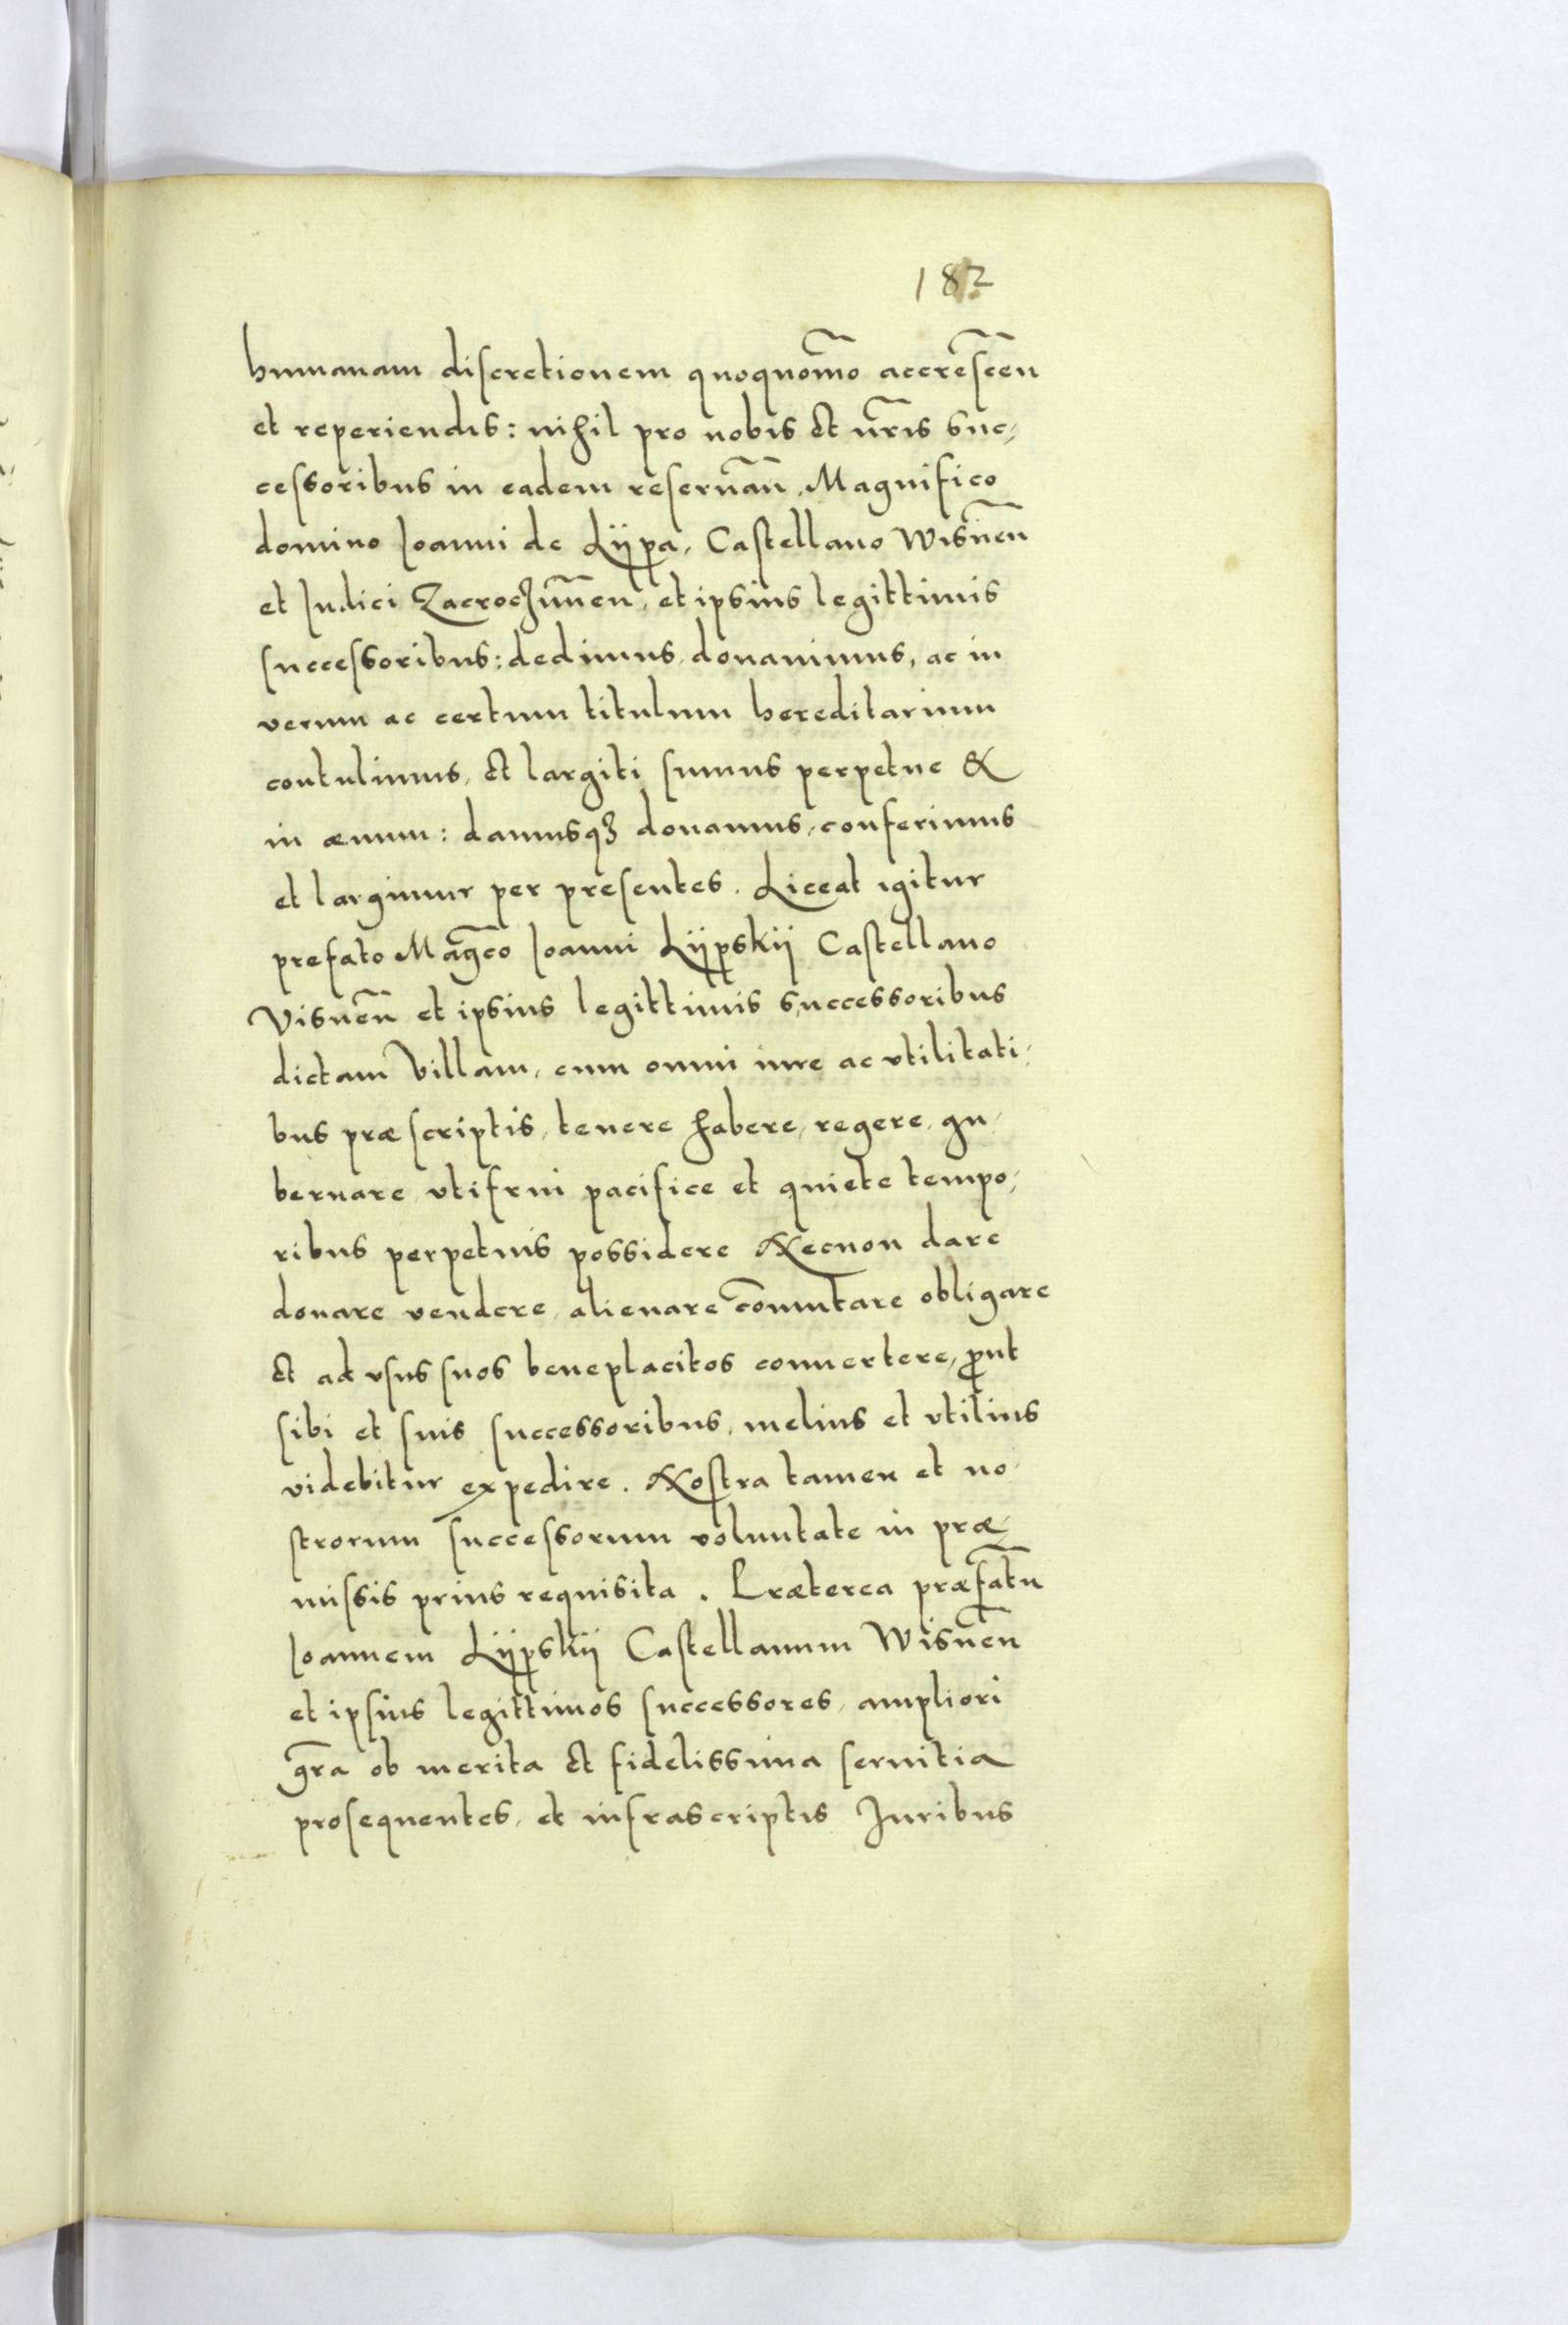 182
humanam discretionem quoquomo͞ accresce͞n
et reperiendis: nihil pro nobis et n͞ris suc,
cessoribus in eadem reserua͞n, Magnifico
domino Joanni de Lÿpa, Castellano Wisne͞n
et Iudici Zacrocʒim͞en, et ipsius legittimis
successoribus: dedimus, donauimus, ac in
verum ac certum titulum hereditarium
contulimus, et largiti sumus perpetue &
in æuum: damusqʒ donamus, conferimus
et largimur per presentes. Liceat igitur
prefato Mag͞co Joanni Lÿpskÿ Castellano
Visne͞n et ipsius legittimis successoribus
dictam Villam, cum omni iure ac vtilitati,
bus præscriptis, tenere habere, regere, gu,
bernare vtifrui pacifice et quiete tempo,
ribus perpetuis possidere Necnon dare
donare vendere, alienare co͞mutare obligare
et ad vsus suos beneplacitos conuertere, ꝓut
sibi et suis successoribus, melius et vtilius
videbitur expedire. Nostra tamen et no,
strorum successorum voluntate in præ,
missis prius requisita. Præterea præfat͞u
Joannem Lÿpskÿ Castellanum Wisne͞n
et ipsius legittimos successores, ampliori
gr͞a ob merita et fidelissima seruitia
prosequentes, et infrascriptis Juribus